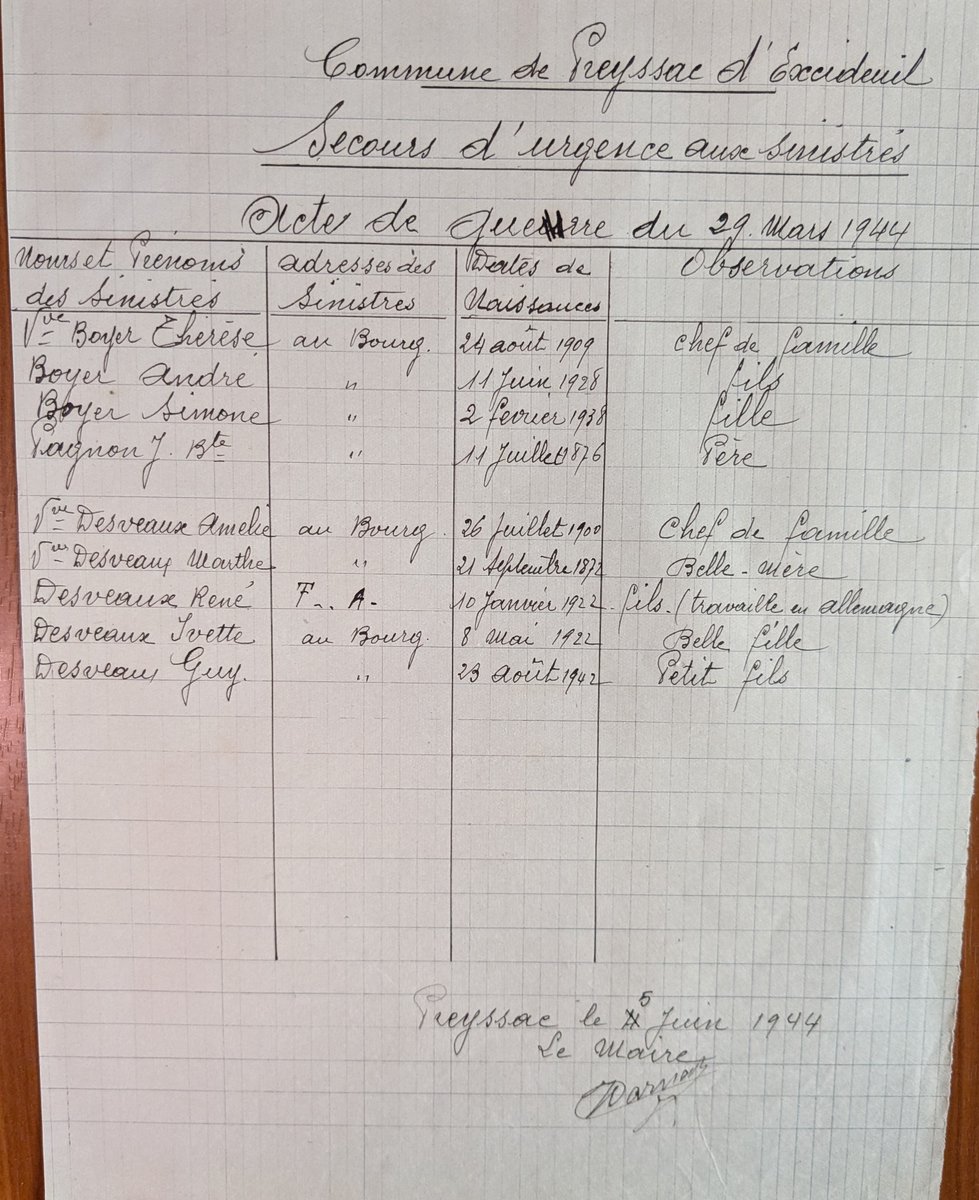 Commune de Preyssac d'Excideuil
Secours d'urgence aux sinistrés
Acte de guerre du 29. Mars 1944
Noms et Prénoms des Sinistrés adresses des Sinistrés Dates de Naissances Observations
Vve Boyer Thérèse au Bourg. 24 août 1909 chef de famille
Boyer André " 11 Juin 1928 fils
Boyer Simone " 2 février 1938 fille
Pagnon J. Bte " 11 Juillet 1876 Père
Vve Desveaux Amelie au Bourg. 26 Juillet 1900 Chef de famille
Vve Desveaux Marthe " 21 Septembre 1872 Belle-mère
Desveaux René F.. A. 10 Janvier 1922. fils. (travaille en allemagne)
Desveaux Yvette au Bourg. 8 Mai 1922 Belle fille
Desveaux Guy. " 23 août 1942 Petit fils
Preyssac le 5 Juin 1944
Le Maire